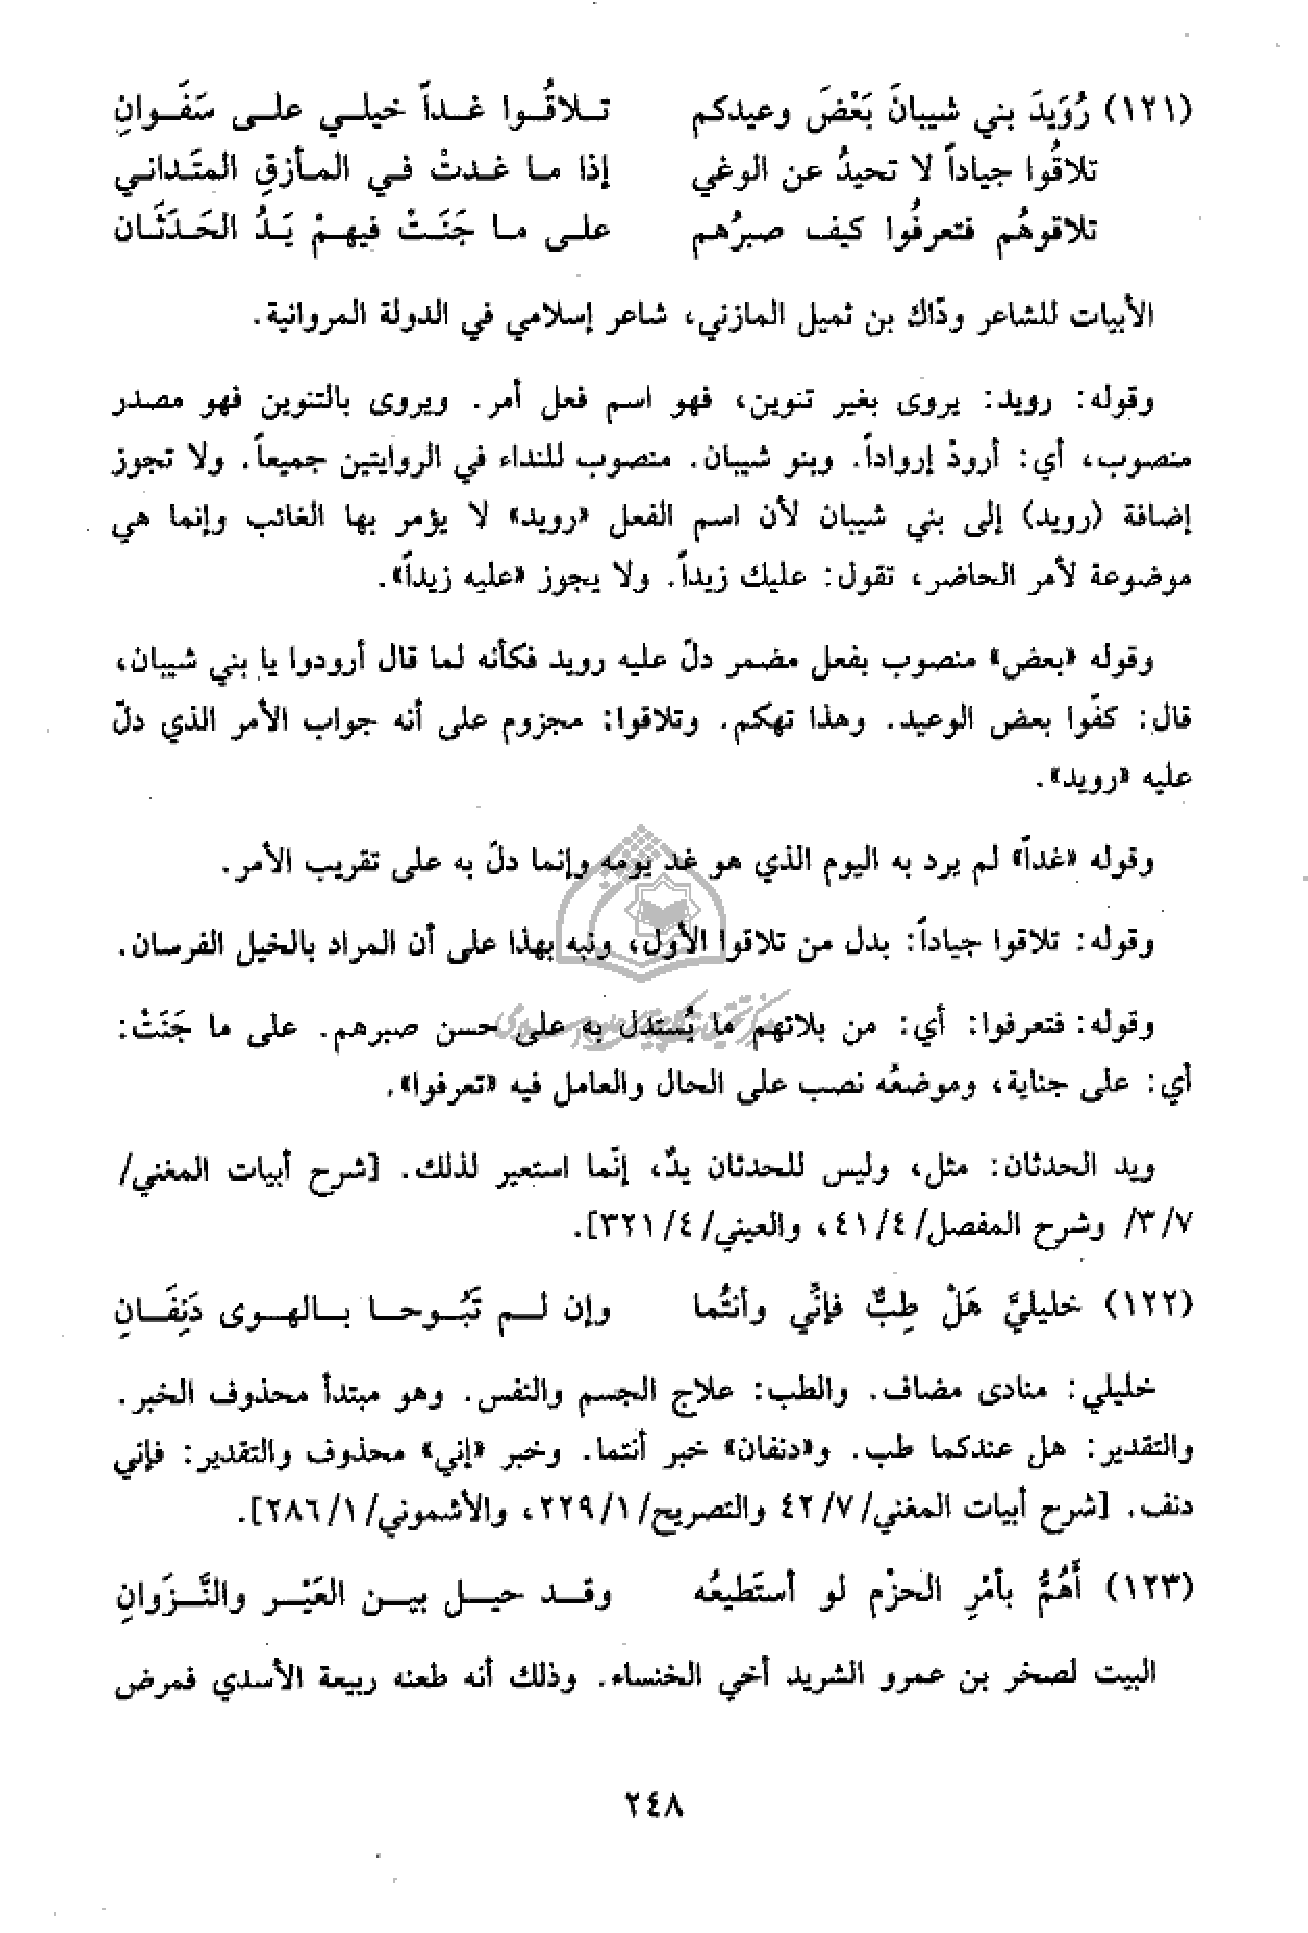 (١٢١) رُوَيدَ بني شيبانَ بَعْضَ وعيدكم تلاقُوا غداً خيلي على سَفَوانِ
تلاقُوا جياداً لا تحيدُ عن الوغي إذا ما غدتْ في المأزقِ المتَداني
تلاقوهُم فتعرفُوا كيف صبرُهم على ما جَنَتْ فيهمْ يَدُ الحَدَثَان
الأبيات للشاعر ودّاك بن ثميل المازني، شاعر إسلامي في الدولة المروانية.
وقوله: رويد: يروى بغير تنوين، فهو اسم فعل أمر. ويروى بالتنوين فهو مصدر
منصوب، أي: أرودْ إرواداً. وبنو شيبان. منصوب للنداء في الروايتين جميعاً. ولا تجوز
إضافة (رويد) إلى بني شيبان لأن اسم الفعل «رويد» لا يؤمر بها الغائب وإنما هي
موضوعة لأمر الحاضر، تقول: عليك زيداً. ولا يجوز «عليه زيداً».
وقوله «بعض» منصوب بفعل مضمر دلّ عليه رويد فكأنه لما قال أرودوا يا بني شيبان،
قال: كفّوا بعض الوعيد. وهذا تهكم. وتلاقوا: مجزوم على أنه جواب الأمر الذي دلّ
عليه «رويد».
وقوله «غداً» لم يرد به اليوم الذي هو غد يومه وإنما دلّ به على تقريب الأمر.
وقوله: تلاقوا جياداً: بدل من تلاقوا الأول، ونبه بهذا على أن المراد بالخيل الفرسان.
وقوله: فتعرفوا: أي: من بلائهم ما يُستدل به على حسن صبرهم. على ما جَنَتْ:
أي: على جناية، وموضعُه نصب على الحال والعامل فيه «تعرفوا».
ويد الحدثان: مثل، وليس للحدثان يدٌ، إنّما استعير لذلك. [شرح أبيات المغني/
٣/٧/ وشرح المفصل/٤١/٤، والعيني/٣٢١/٤].
(١٢٢) خليليَّ هَلْ طِبٌّ فإنِّي وأنتُما وإن لم تَبُوحا بالهوى دَنِفَانِ
خليلي: منادى مضاف. والطب: علاج الجسم والنفس. وهو مبتدأ محذوف الخبر.
والتقدير: هل عندكما طب. و«دنفان» خبر أنتما. وخبر «إني» محذوف والتقدير: فإني
دنف. [شرح أبيات المغني/٤٢/٧ والتصريح/٢٢٩/١، والأشموني/٢٨٦/١].
(١٢٣) أَهُمُّ بأمْرِ الحزْم لو أستَطيعُه وقد حيل بين العَيْر والنَّزَوانِ
البيت لصخر بن عمرو الشريد أخي الخنساء. وذلك أنه طعنه ربيعة الأسدي فمرض
٢٤٨